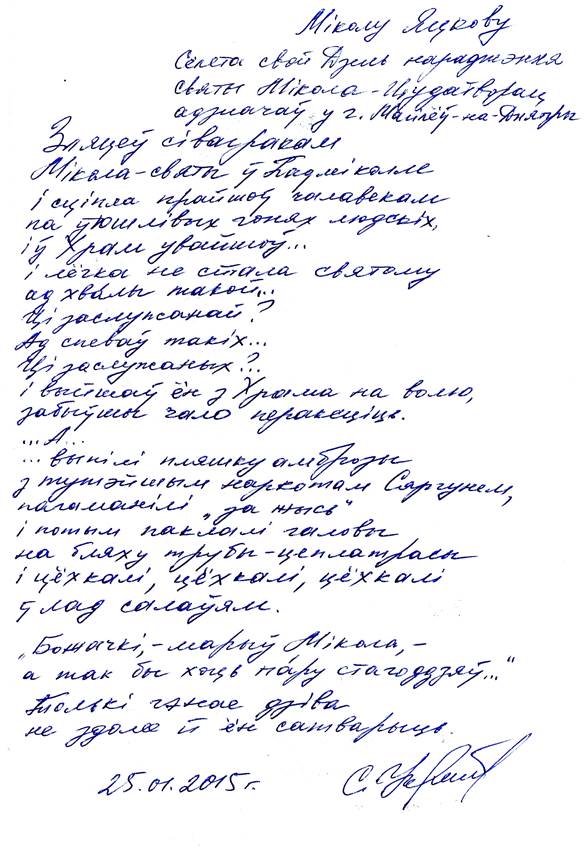 Міколу Яцкову
Сёлета свой Дзень нараджэння
святы Мікола-Цудатворац
адзначаў у г. Магілёў-на-Дняпры
Зляцеў сівагракам
Мікола-святы ў Падміколле
і сціпла прайшоў чалавекам
па ўюшлівых гонях людскіх,
і ў Храм увайшоў...
і лёгка не стала святому
ад хвалы такой...
Ці заслужанай?
Ад спеваў такіх...
Ці заслужаных?..
і выйшаў ён з Храма на волю,
забыўшы чало перахсціць.
...А...
...выпілі пляшку амброзы
з тутэйшым наркотам Сяргунем,
пагаманілі „за жысь“
і потым паклалі галовы
на бляху трубы-цеплатрасы
і цёхкалі, цёхкалі, цёхкалі
ў лад салаўям.
„Божачкі,-марыў Мікола,-
а так бы хоць пару стагоддзяў...“
Толькі гэнае дзіва
не здолее й ён сатварыць.
25.01.2015 г. С.